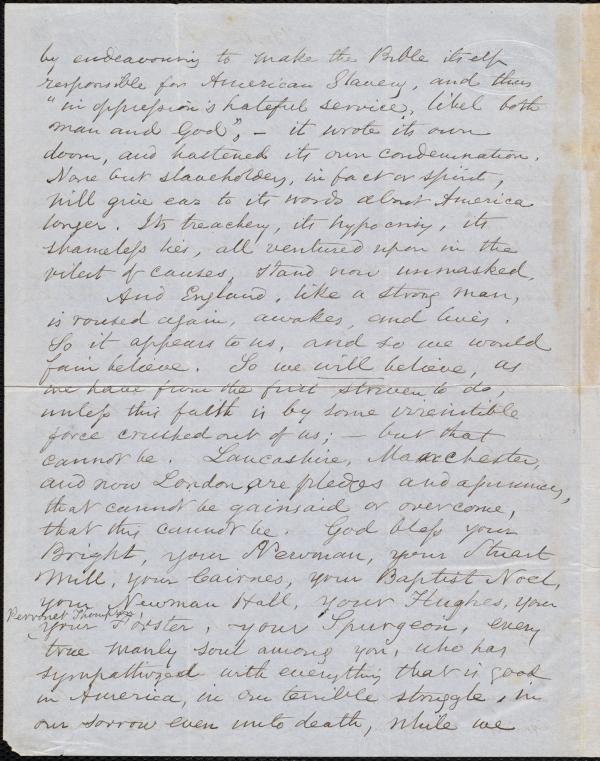 by endeavouring to make the Bible itself
responsible for American Slavery, and thus
"in oppression's hateful service, libel both
man and God", – it wrote its own
doom, and hastened its own condemnation.
None but slaveholders, in fact or spirit,
will give ear to its words about America
longer. Its treachery, its hypocrisy, its
shameless lies, all ventured upon in the
vilest of causes, stand now unmasked.
And England, like a strong man,
is roused again, awakes, and lives.
So it appears to us, and so we would
fain believe. So we will believe, as
we have from the first striven to do,
unless this faith is by some irresistible
force crushed out of us; – but that
cannot be. Lancashire, Manchester,
and now London, are pledges and assurances,
that cannot be gainsaid or overcome,
that this cannot be. God bless your
Bright, your Newman, your Stuart
Mill, your Cairnes, your Baptist Noel,
your Newman Hall, your Hughes, your
Perronet Thompson,
your Forster, your Spurgeon, every
true manly soul among you, who has
sympathized with everything that is good
in America, in our terrible struggle, in
our sorrow even unto death, while we